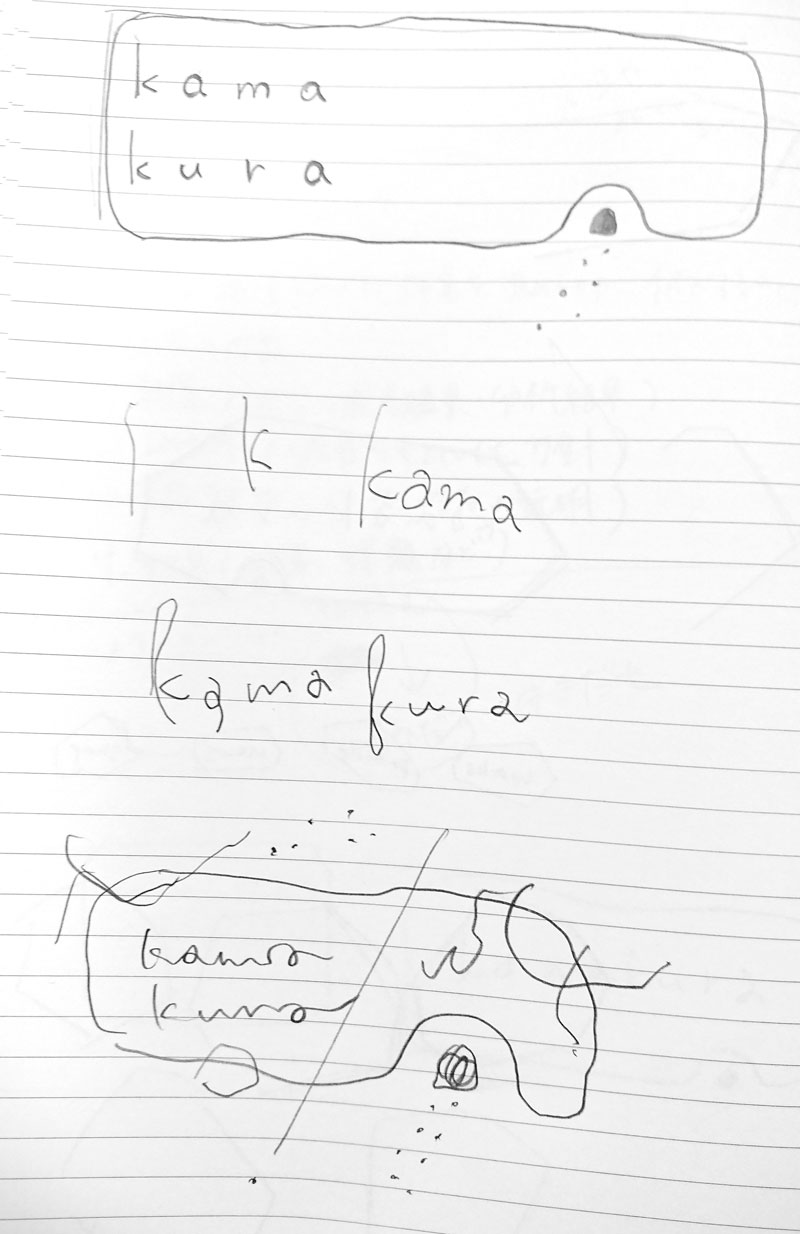 kama
kura
k kama
kama kura
kama
kura